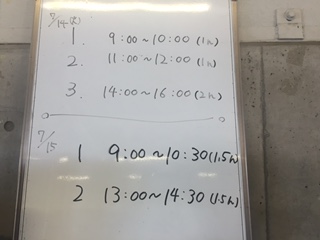 7/14(火)
1. 9:00~10:00(1h)
2. 11:00~12:00(1h)
3. 14:00~16:00(2h)
7/15
1 9:00~10:30(1.5h)
2 13:00~14:30(1.5h)